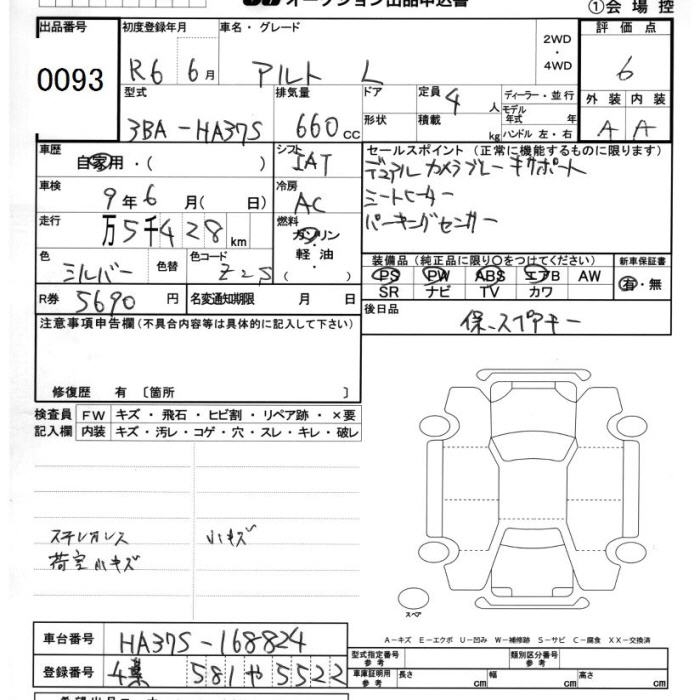 オークション出品申込書
①会場控
出品番号
0093
初度登録年月
R6 6月
車名・グレード
アルト L
2WD
・
4WD
評価点
6
外装 内装
A A
型式
3BA-HA37S
排気量
660cc
ドア
形状
定員 4人
積載 kg
ディーラー・並行
モデル
年式 年
ハンドル 左・右
車歴
自家用・( )
シフト
IAT
セールスポイント (正常に機能するものに限ります)
デュアルカメラブレーキサポート
シートヒーター
パーキングセンサー
車検
9年6月( 日)
冷房
AC
走行
万5千428km
燃料
ガソリン
・
軽油
( )
色
シルバー
色替
色コード
Z2S
装備品 (純正品に限り○をつけてください)
PS PW ABS エアB AW
SR ナビ TV カワ
新車保証書
有・無
R券
5690円
名変通知期限 月 日
後日品
保、スペアキー
注意事項申告欄 (不具合内容等は具体的に記入して下さい)
修復歴 有 〔箇所 〕
検査員
記入欄
FW キズ・飛石・ヒビ割・リペア跡・×要
内装 キズ・汚レ・コゲ・穴・スレ・キレ・破レ
小キズ
荷室小キズ
スペア
A-キズ E-エクボ U-凹み W-補修跡 S-サビ C-腐食 XX-交換済
車台番号
HA37S-168824
登録番号
581や5522
型式指定番号
参考
類別区分番号
参考
車庫証明用
参考
長さ cm 幅 cm 高さ cm